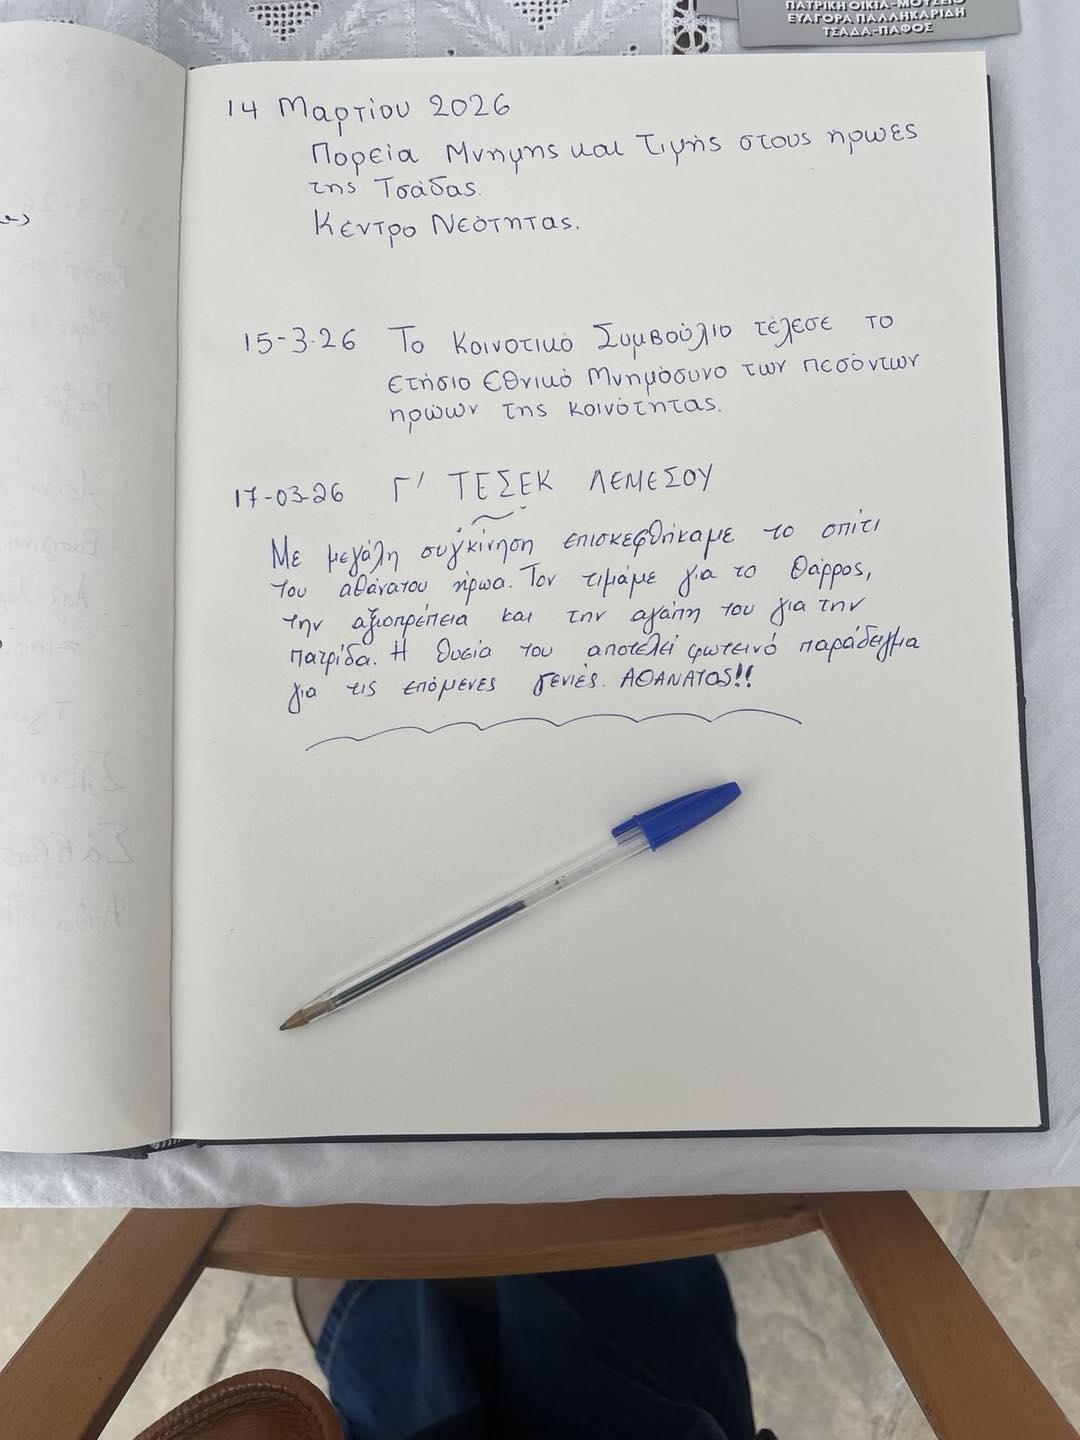 ΠΑΤΡΙΚΗ ΟΙΚΙΑ-ΜΟΥΣΕΙΟ
ΕΥΑΓΟΡΑ ΠΑΛΛΗΚΑΡΙΔΗ
ΤΣΑΔΑ-ΠΑΦΟΣ
14 Μαρτίου 2026
Πορεία Μνήμης και Τιμής στους ήρωες
της Τσάδας.
Κέντρο Νεότητας.
15-3-26 Το Κοινοτικό Συμβούλιο τέλεσε το
ετήσιο εθνικό Μνημόσυνο των πεσόντων
ηρώων της κοινότητας.
17-03-26 Γ' ΤΕΣΕΚ ΛΕΜΕΣΟΥ
Με μεγάλη συγκίνηση επισκεφθήκαμε το σπίτι
του αθάνατου ήρωα. Τον τιμάμε για το θάρρος,
την αξιοπρέπεια και την αγάπη του για την
πατρίδα. Η θυσία του αποτελεί φωτεινό παράδειγμα
για τις επόμενες γενιές. ΑΘΑΝΑΤΟΣ!!